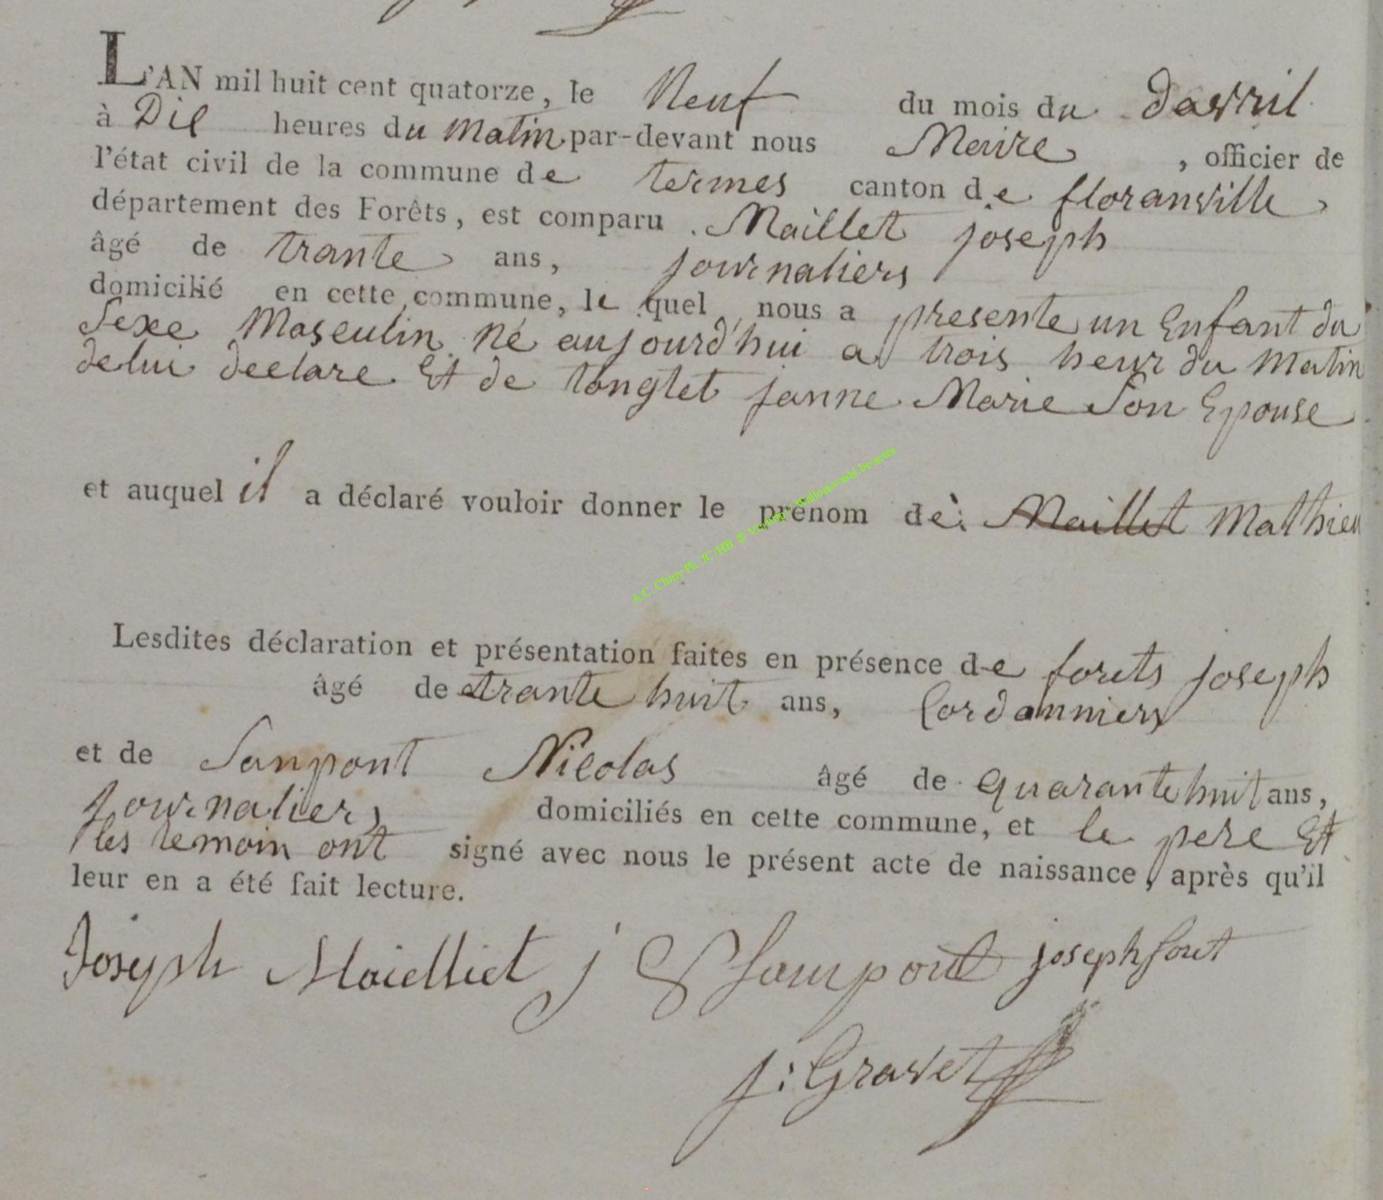 L'AN mil huit cent quatorze, le Neuf du mois du davril
à Dil heures du matin par-devant nous Maire, officier de
l'état civil de la commune de termes canton de floranville,
département des Forêts, est comparu Maillet joseph
âgé de trante ans, journaliers
domicilié en cette commune, le quel nous a presente un Enfant du
Sexe Masculin né aujourd'hui a trois heur du Matin
de lui declare Et de tonglet janne Marie Son Epouse
et auquel il a déclaré vouloir donner le prénom de: Maillet Mathieu
Lesdites déclaration et présentation faites en présence de forets joseph
âgé de trante huit ans, Cordanniers
et de Sanpont Nicolas âgé de quarante huit ans,
journalier, domiciliés en cette commune, et le pere Et
les temoin ont signé avec nous le présent acte de naissance, après qu'il
leur en a été fait lecture.
Joseph Maielliet j Sampont joseph foret
j: Gravet